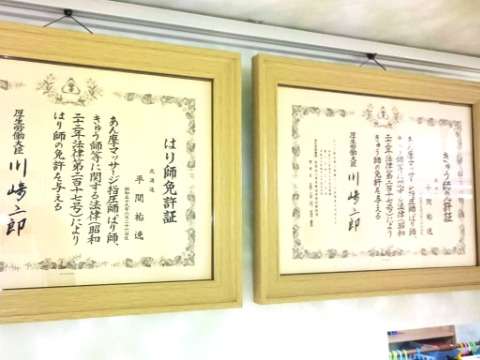 はり師免許証
北海道
平間祐逸
あん摩マッサージ指圧師はり師、
きゅう師等に関する法律(昭和
二十二年法律第二百十七号)により
はり師の免許を与える
厚生労働大臣 川崎二郎
きゅう師免許証
あん摩マッサージ指圧師はり師、
きゅう師等に関する法律(昭和
二十二年法律第二百十七号)により
きゅう師の免許を与える
厚生労働大臣 川崎二郎